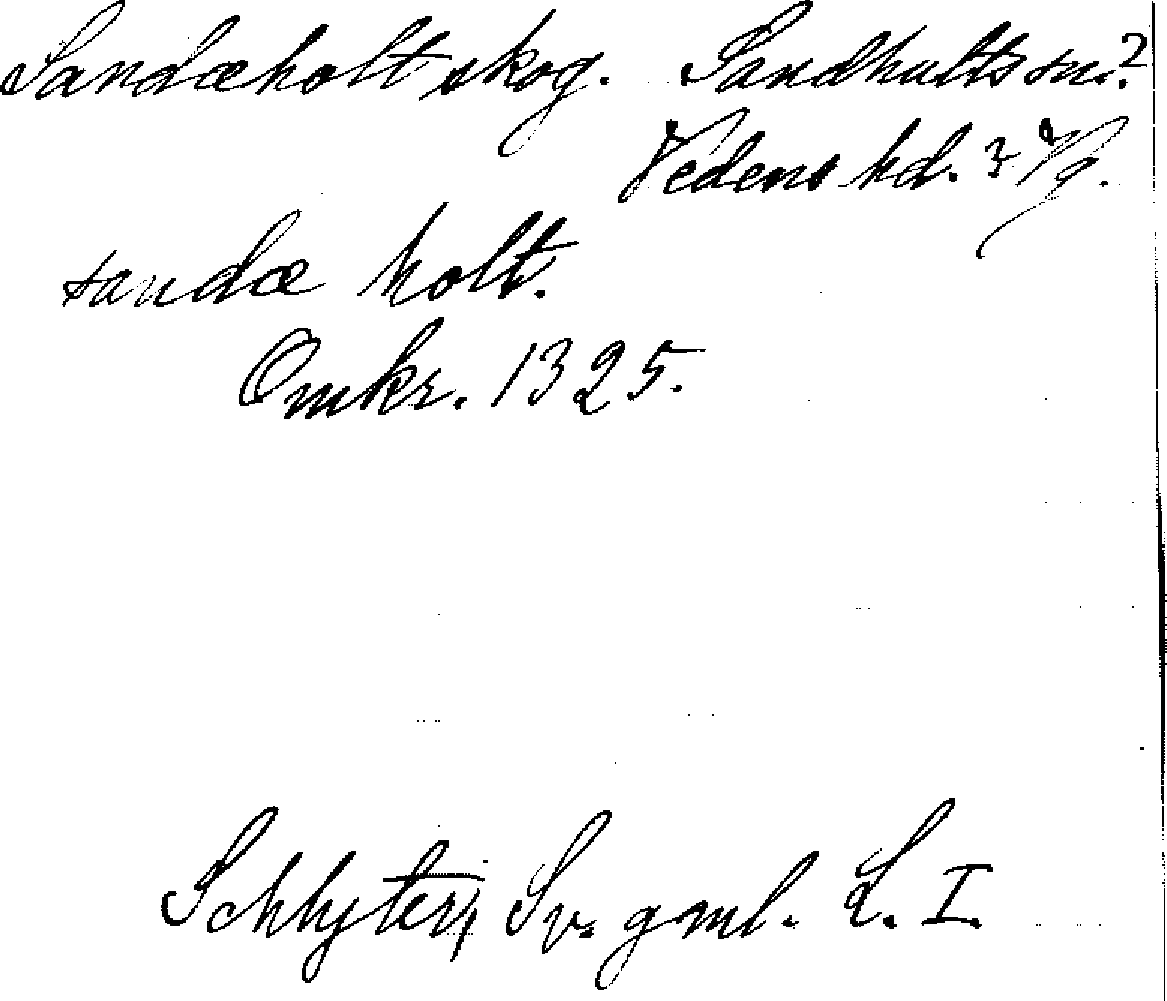 Sandæholt skog. Sandhults sn.?
Vedens hd.? Vg.
sandæ holt.
Omkr. 1325.
Schlyter, Sv. gml. L. I.